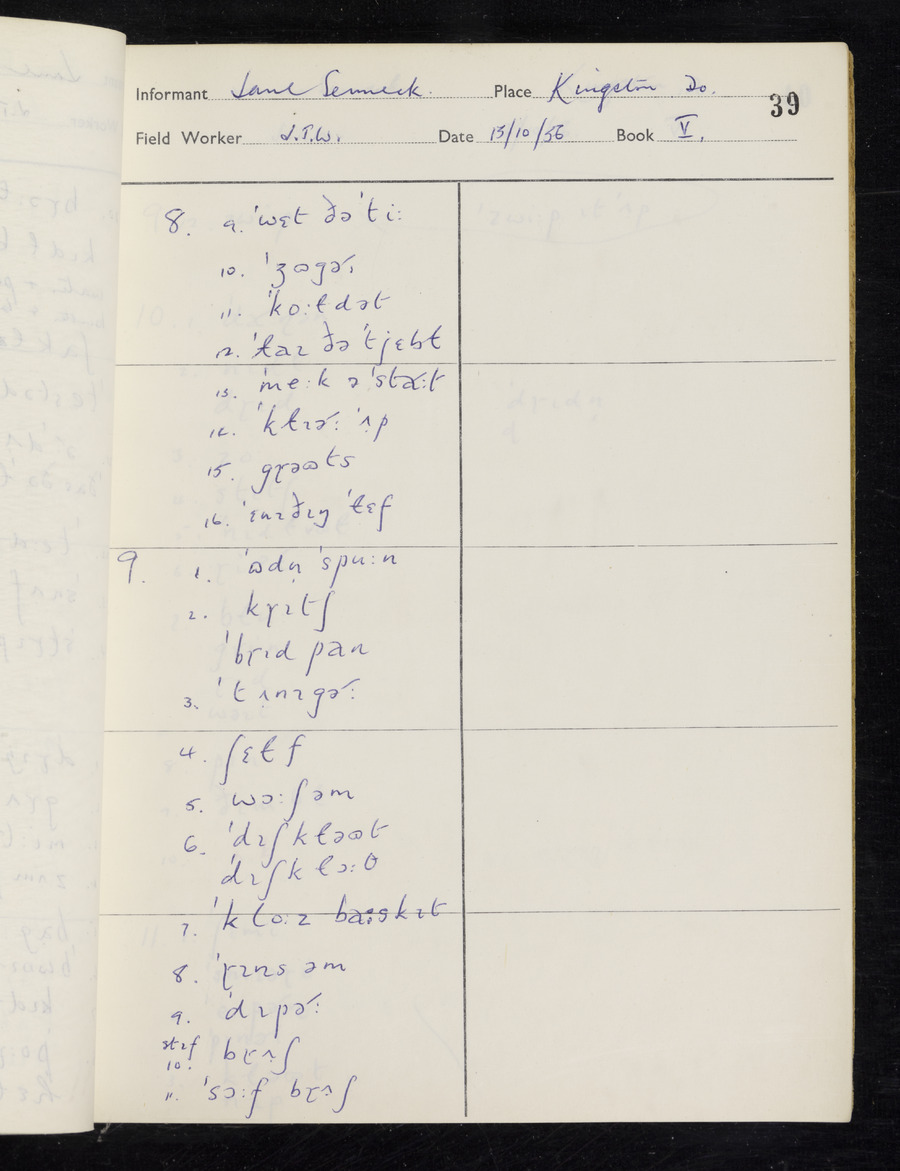 Informant Jane Senneck. Place Kingston Do. 39
Field Worker J.T.W. Date 13/10/56 Book V.
8. 9. ˈwɛt ðə ˈtiː
10. ˈʒɷgəʴ
11. ˈkoːɫdət
12. ˈɫaɪ ðə ˈtjɛbɫ
13. ˈmeːk ə ˈstaʴːt
14. ˈkɫɪəʴː ˈʌp
15. gɽəɷts
16. ˈɛnɪðɪŋ ˈɫɛf
9. 1. ˈɷdn̩ ˈspuːn
2. kɽɪtʃ
ˈbrɪd pan
3. ˈtʌnɪgəʴː
4. ʃɛɫf
5. wɔːʃ əm
6. ˈdɪʃkɫəɷt
ˈdɪʃkɫɔːθ
7. ˈkɫoːz baːskɪt
8. ˈɽɪns əm
9. ˈdɪpəʴː
stɪf
10. bɽʌʃ
11. ˈsɔːf bɽʌʃ